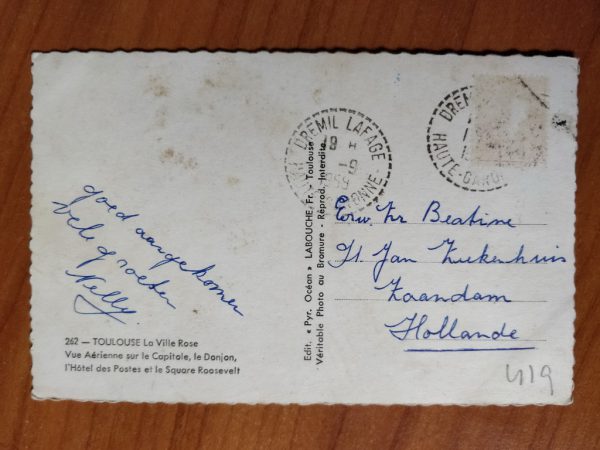 goed aangekomen
vele groeten
Nelly.
262 — TOULOUSE La Ville Rose
Vue Aérienne sur le Capitole, le Donjon,
l'Hôtel des Postes et le Square Roosevelt
Edit. « Pyr. Océan » LABOUCHE Fr. Toulouse
Véritable Photo au Bromure - Réprod. Interdite
DREMIL LAFAGE
18 H
-9
1959
GARONNE
DREM
HAUTE-GARO
Eerw. Zr Beatrine
St. Jan Ziekenhuis
Zaandam
Hollande
419